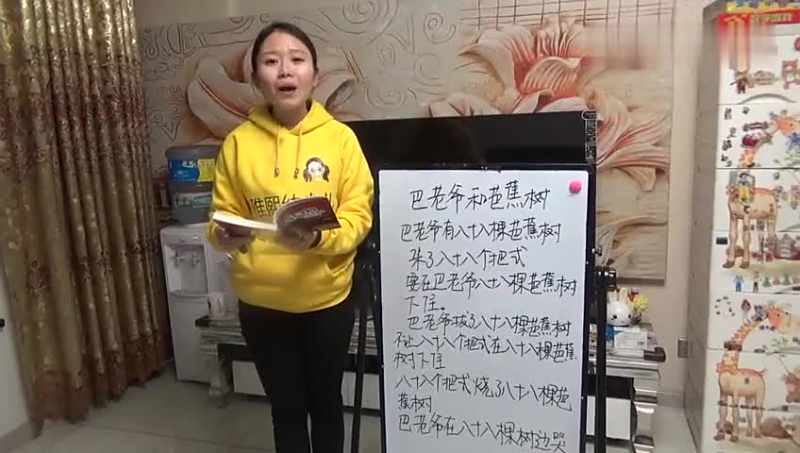 巴老爷和芭蕉树
巴老爷有八十八棵芭蕉树
来了八十八个把式
要在巴老爷八十八棵芭蕉树
下住。
巴老爷拔了八十八棵芭蕉树
不让八十八个把式在八十八棵芭蕉
树下住
八十八个把式烧了八十八棵芭
蕉树
巴老爷在八十八棵树边哭